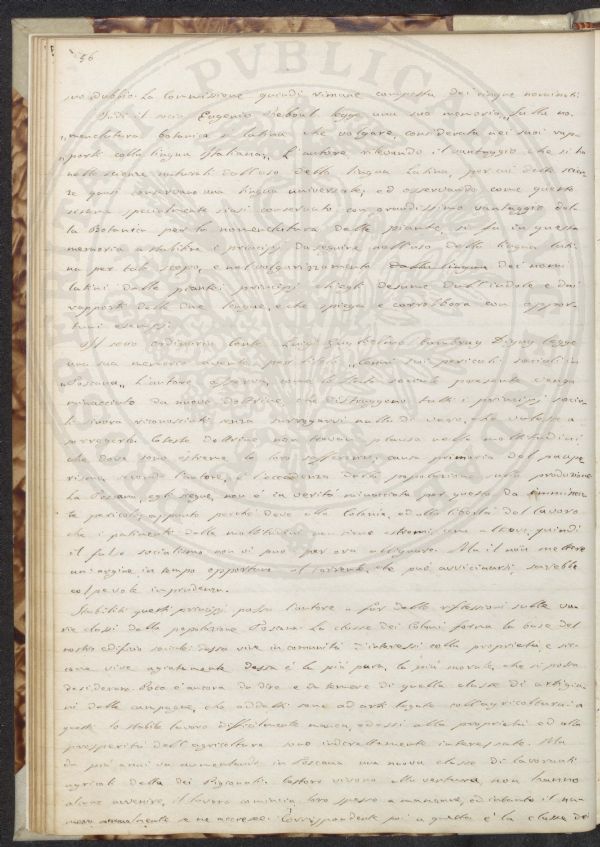 56
suo dubbio. La Commissione quindi rimane composta dei cinque nominati.
Indi il socio Eugenio Reboul legge una sua memoria „ Sulla no-
„menclatura botanica sì latina che volgare, considerata nei suoi rap-
„porti colla lingua Italiana„ L'autore rilevando il vantaggio che si ha
nelle scienze naturali dall'uso della lingua Latina, per cui dette scien-
ze quasi conservano una lingua universale, ed osservando come questo
sistema specialmente siasi conservato con grandissimo vantaggio dal-
la Botanica per la nomenclatura delle piante, si fa in questa
memoria a stabilire i principj da seguire nell'uso della lingua lati-
na per tale scopo, e nel volgarizzamento dalla lingua dei nomi
latini delle piante; principj ch'egli desume dall'indole e dai
rapporti delle due lingue, e che spiega e corrobora con oppor-
tuni esempj.
Il socio ordinario Conte Luigi Guglielmo Cambray Digny legge
una sua memoria avente per titolo „ Cenni sui pericoli sociali in
„Toscana„ L'autore osserva come lo stato sociale presente venga
minacciato da nuove dottrine, che distruggono tutti i principj socia-
li finora riconosciuti senza surrogarvi nulla di vero, che valga a
sorreggerla. Coteste dottrine non trovan plauso nelle moltitudini
che dove sono estreme le loro sofferenze; causa primaria del paupe-
rismo, secondo l'autore, è l'eccedenza della popolazione sulla produzione
La Toscana, egli segue, non è in verità minacciata per questo da imminen-
te pericolo, appunto perchè deve alla Colonia, ed alla libertà del lavoro
che i patimenti delle moltitudini non siano estremi come altrove, quindi
il falso socialismo non vi può per ora allignare. Ma il non mettere
un'argine in tempo opportuno al torrente, che può avvicinarsi sarebbe
colpevole imprudenza.
Stabiliti questi principj passa l'autore a far delle riflessioni sulle va-
rie classi della popolazione Toscana. La classe dei Coloni forma la base del
nostro edifizio sociale. Essa vive in comunità d'interessi colla proprietà, e sic-
come vive agiatamente dessa è la più pura, la più morale, che si possa
desiderare. Poco è ancora da dire e da temere di quella classe di artigia-
ni delle campagne, che addetti sono ad arti legate coll'agricoltura; a
questi lo stabile lavoro difficilmente manca, ed essi alla proprietà ed alla
prosperità dell'agricoltura sono indirettamente interessati. Ma
da più anni va aumentando in Toscana una nuova classe di lavoranti
agricoli della dei Pigionali. Costoro vivono alla ventura, non hanno
alcun avvenire, il lavoro comincia loro spesso a mancare, ed intanto il nu-
mero annualmente se ne accresce. Corrispondente poi a questa è la classe dei